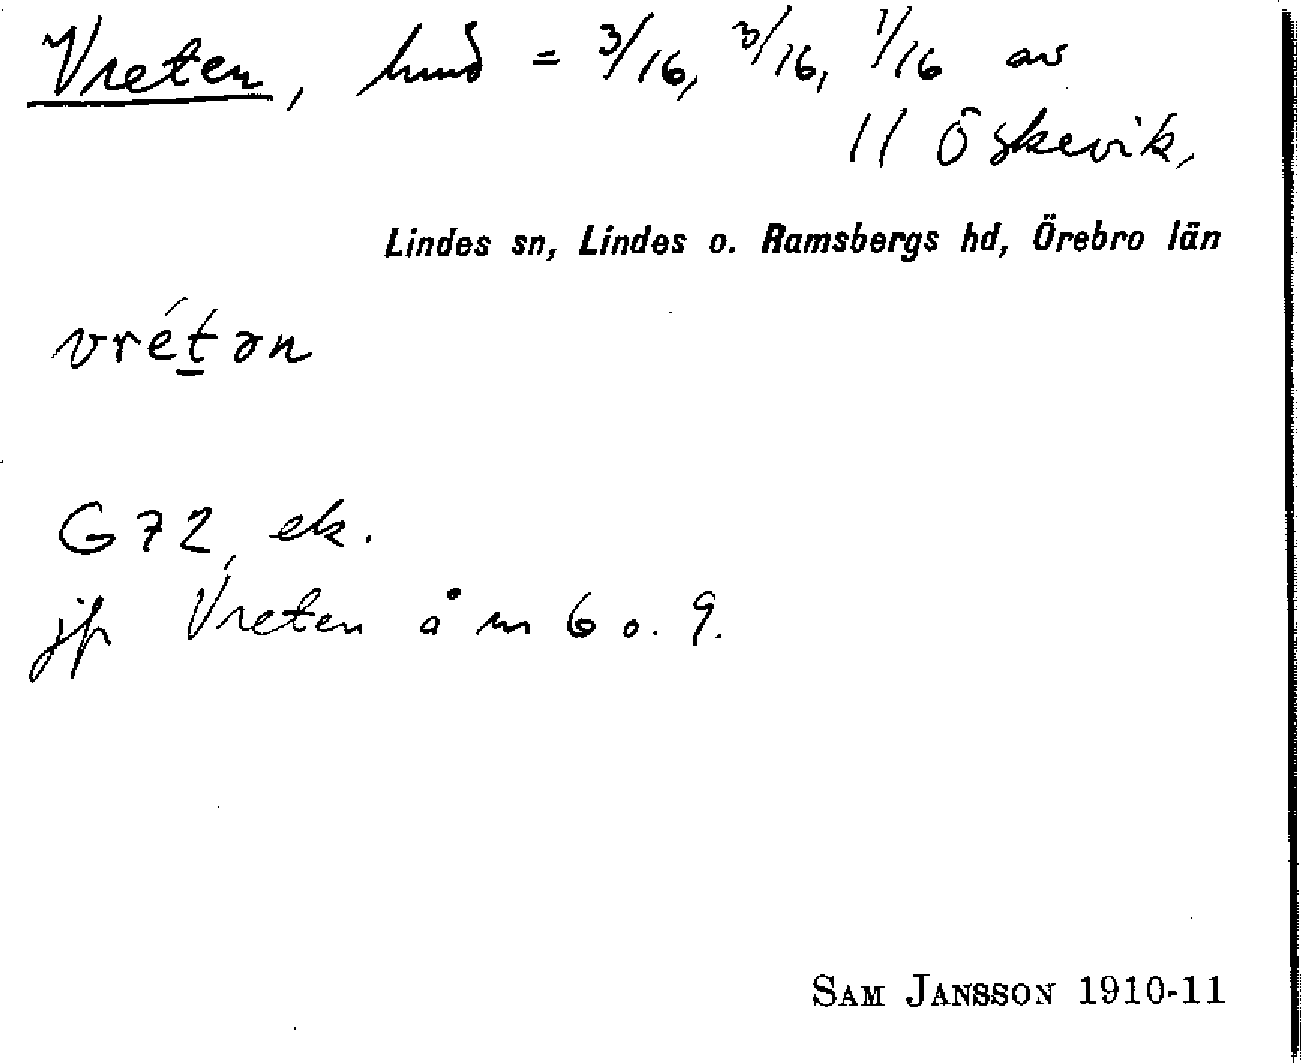 Vreten, hmd = 3/16, 3/16, 1/16 av
11 Öskevik,
Lindes sn, Lindes o. Ramsbergs hd, Örebro län
vrétən
G 72, ek.
jfr Vreten å nr 6 o. 9.
SAM JANSSON 1910-11